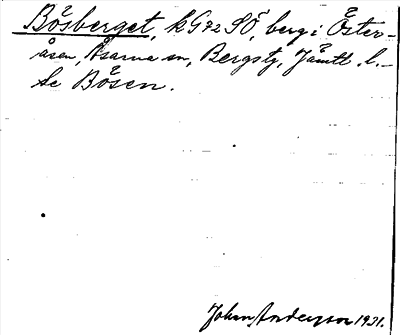 Bösberget, k G72 SÖ, berg i Öster-
åsen, Åsarna sn, Bergstg, Jämtl. l. –
Se Bösen.
Johan Anderson 1931.